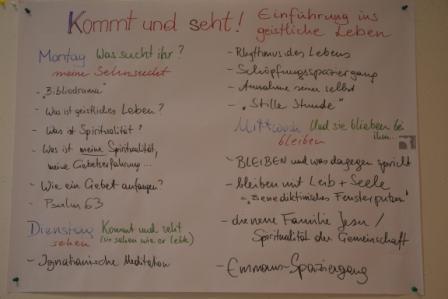 Kommt und seht! Einführung ins
geistliche Leben
Montag Was sucht ihr?
meine Sehnsucht
- "Bibliodrama"
- Was ist geistliches Leben?
- Was ist Spiritualität?
- Was ist meine Spiritualität,
meine Gebetserfahrung...
- Wie ein Gebet anfangen?
- Psalm 63
Dienstag Kommt und seht
sehen (sie sahen wie er lebte)
- Ignatianische Meditation
- Rhythmus des Lebens
- Schöpfungsspaziergang
- Annahme seiner selbst
- "Stille Stunde"
Mittwoch Und sie blieben bei
ihm
bleiben
- BLEIBEN und was dagegen spricht
- bleiben mit Leib + Seele
- "benediktinisches Fensterputzen"
- die neue Familie Jesu /
Spiritualität der Gemeinschaft
- Emmaus-Spaziergang